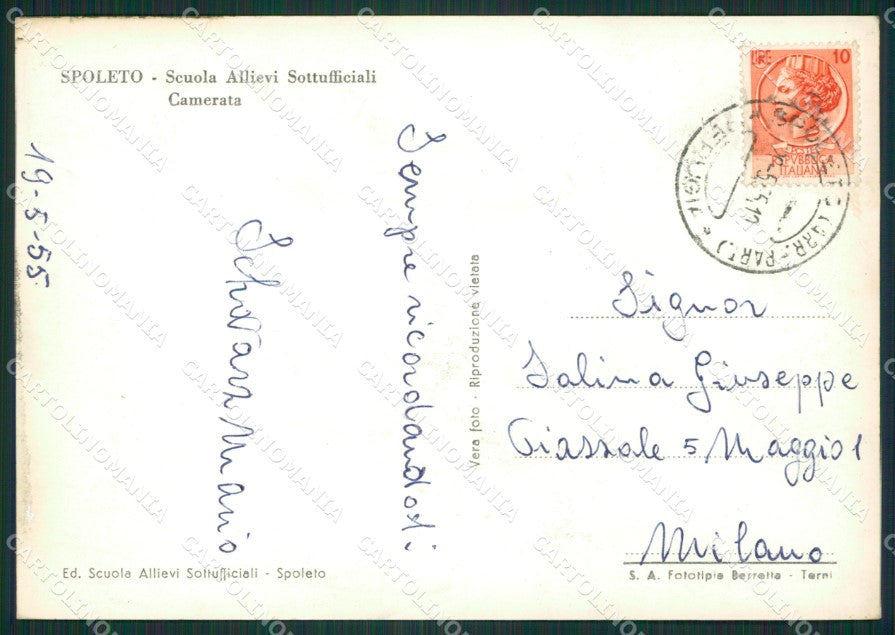 SPOLETO - Scuola Allievi Sottufficiali
Camerata
19-5-55
Sempre ricordandoti
Mario
Vera foto - Riproduzione vietata
LIRE 10
POSTE
REPVBBLICA
ITALIANA
(ARR.-PART.)
Signor
Salina Giuseppe
Piazzale 5 Maggio 1
Milano
Ed. Scuola Allievi Sottufficiali - Spoleto
S. A. Fototipia Berretta - Terni
CARTOLINOMANIA